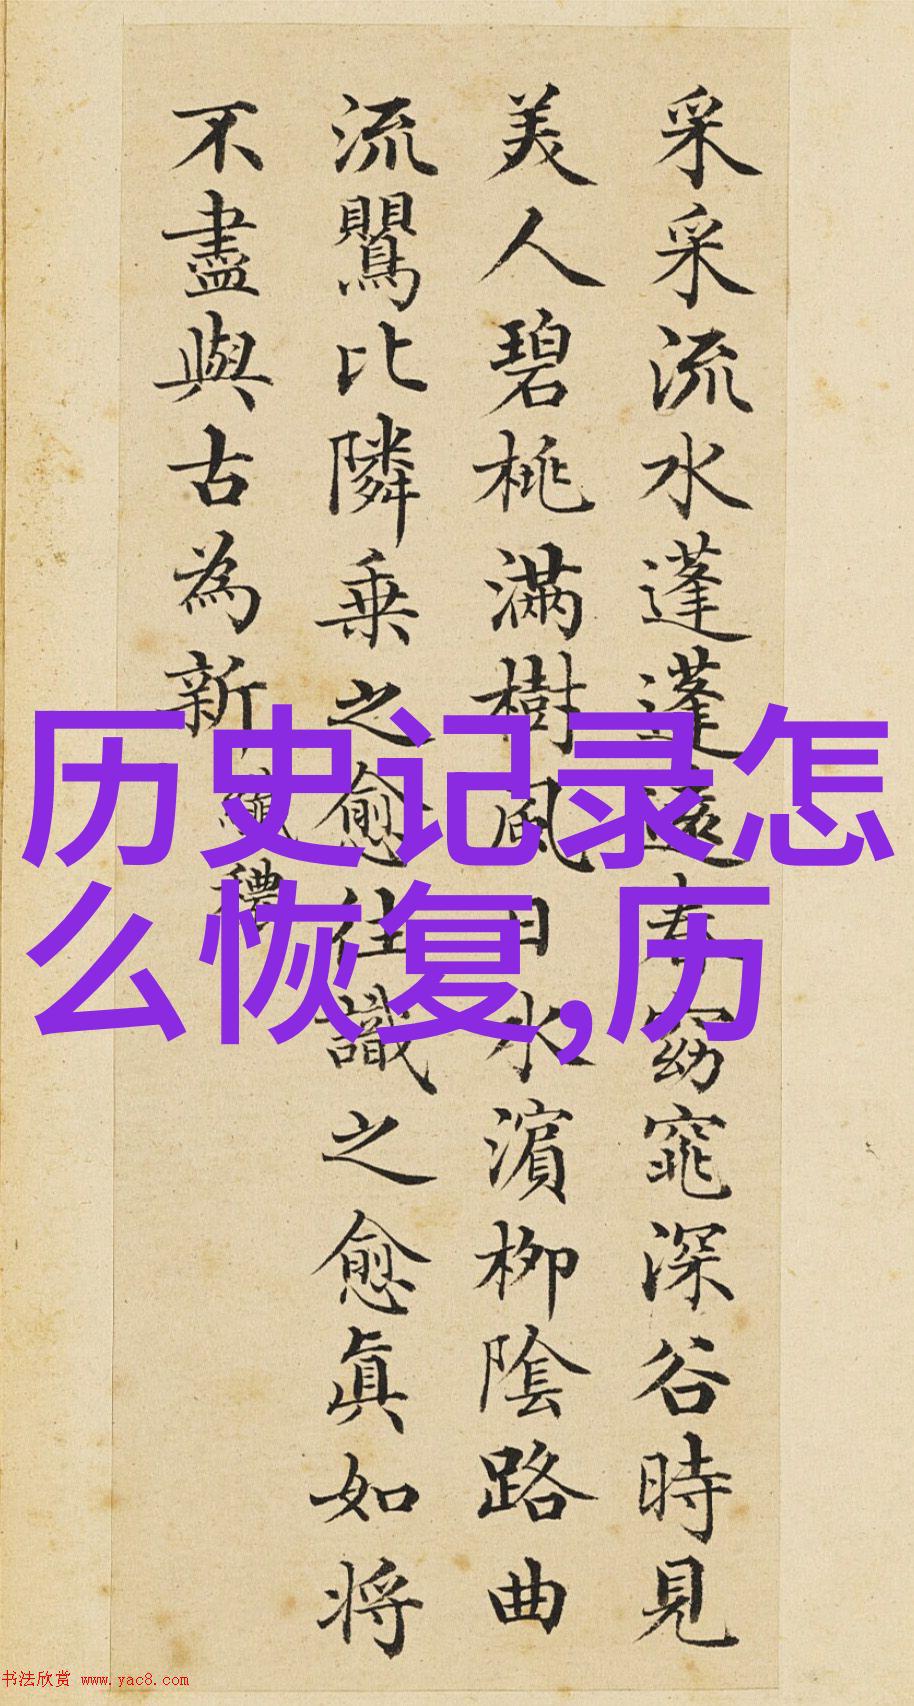 采采流水蓬蓬遠春窈窕深谷時見
美人碧桃滿樹風日水濱柳陰路曲
流鸎比隣乗之愈往識之愈眞如将
不盡與古為新 纖穠
历史记录怎
么恢复,历
书法欣赏 www.yac8.com